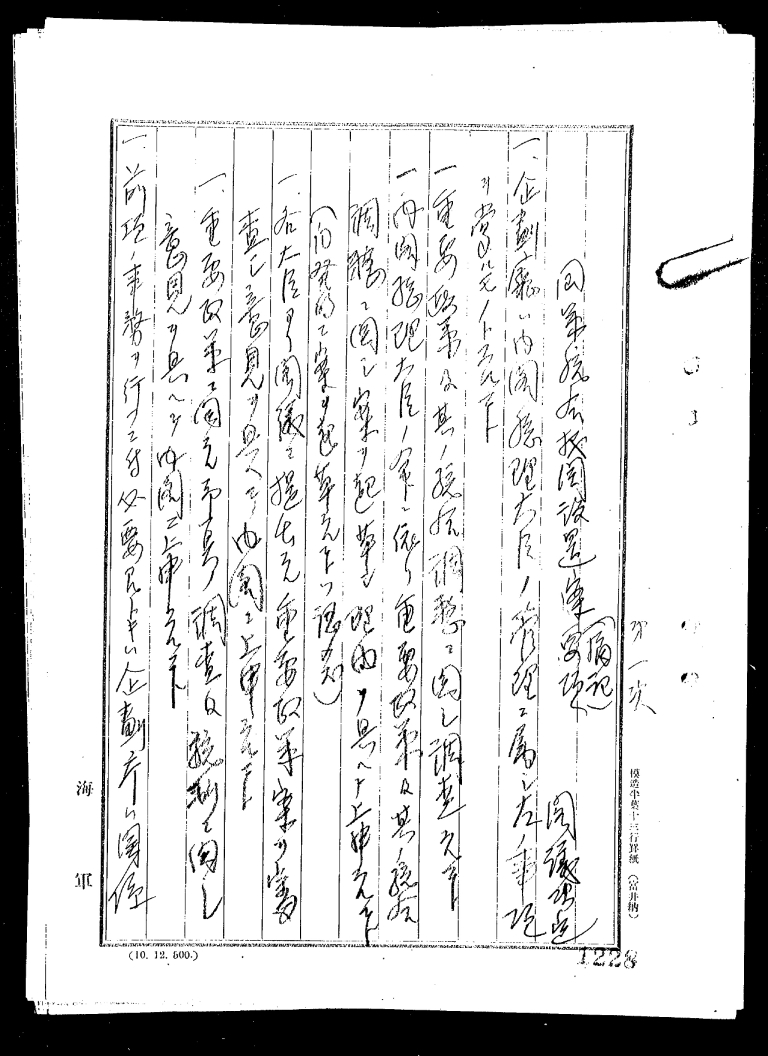 第一次
国策統合機関設置案要項
(病記)
閣議決定
一、企劃廳ハ内閣総理大臣ノ管理ニ属シ左ノ事項
ヲ掌ルモノトスルコト
一、重要政策及其ノ統合調整ニ関シ調査スルコト
一、内閣総理大臣ノ命ニ依リ重要政策及其ノ統合
調整ニ関シ案ヲ起草シ理由ヲ具ヘテ上申スルコト
(自発的ニ案ヲ起草スルコトハ認メズ)
一、各大臣ヨリ閣議ニ提出スル重要政策案ヲ審
査シ意見ヲ具ヘテ内閣ニ上申スルコト
一、重要政策ニ関スル予算ノ調査及統制ニ関シ
意見ヲ具ヘテ内閣ニ上申スルコト
一、前項ノ事務ヲ行フニ付必要アルトキハ企劃庁ハ関係
海軍
模造半葉十三行罫紙 (富井納)
(10. 12. 500.)
1228